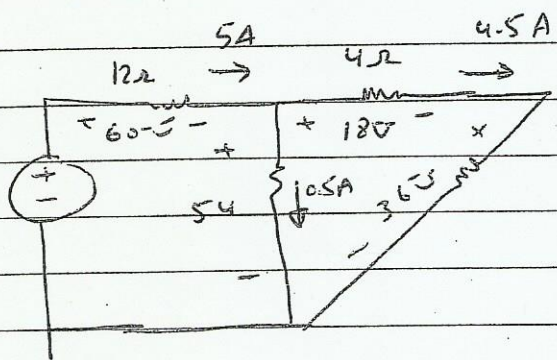 5A 4.5A
12Ω → 4Ω →
+ 60V - + 18V -
+ +
+ - 54 0.5A 36V
- -